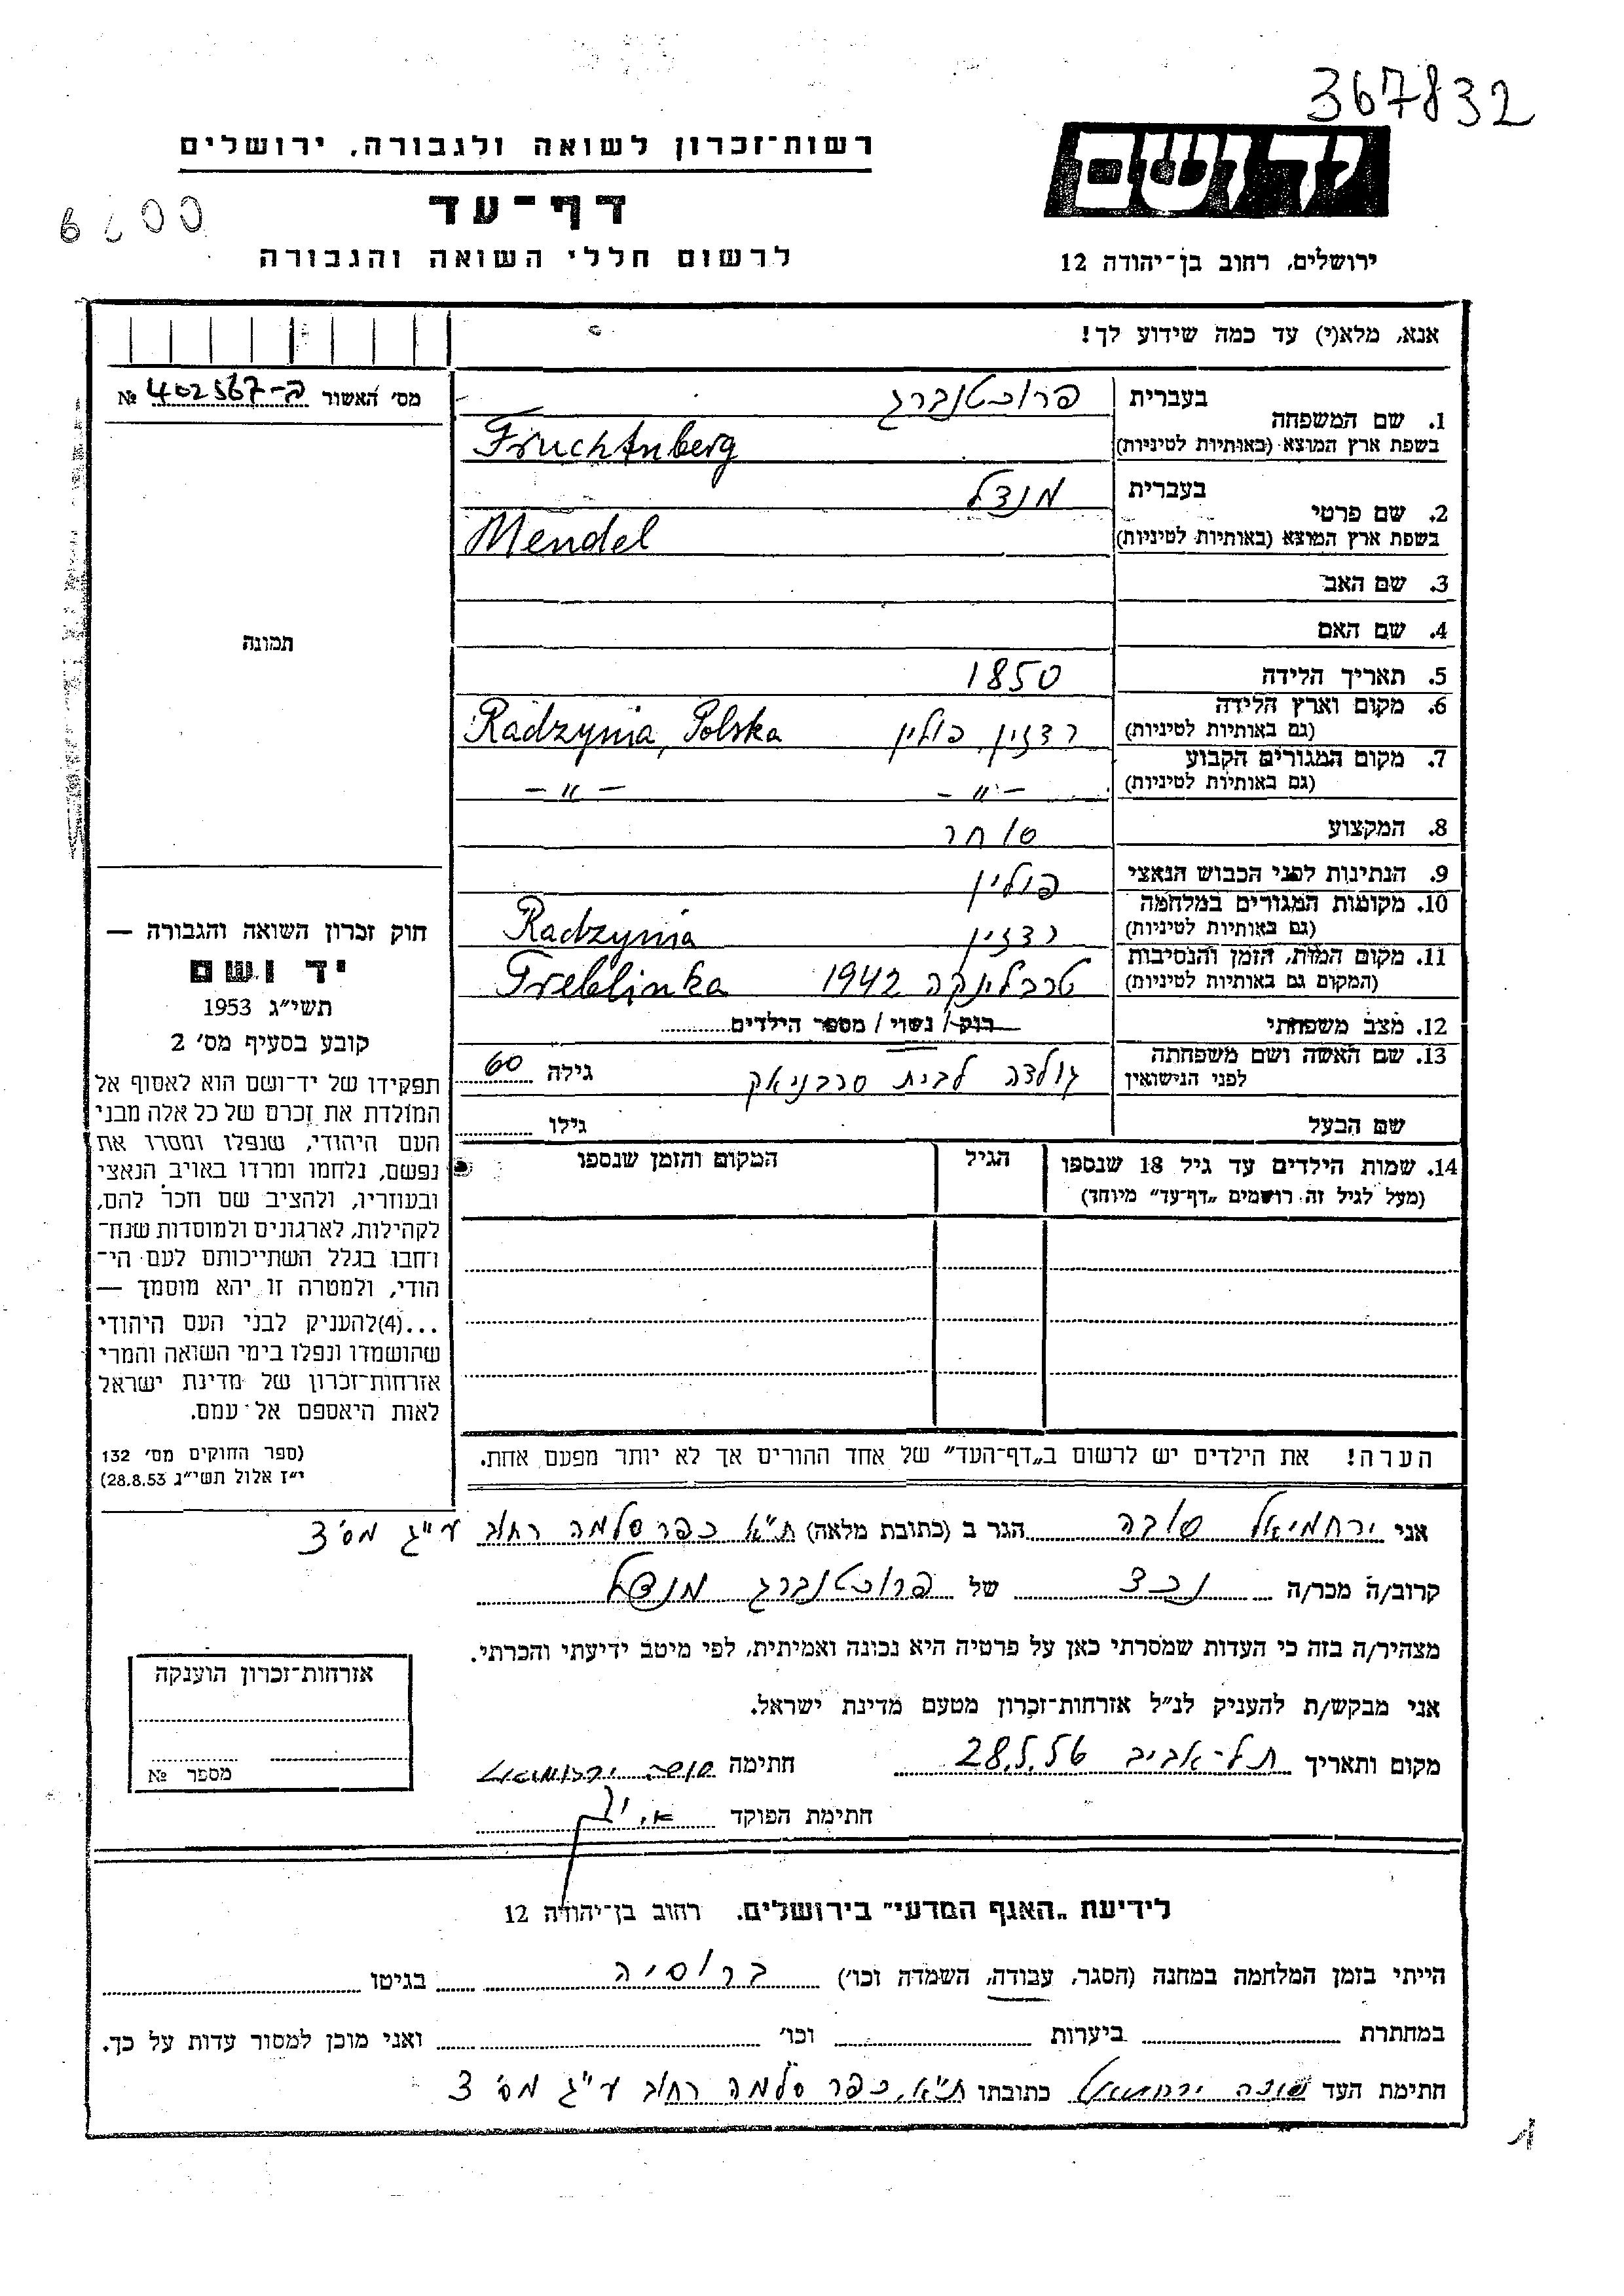 367832
רשות־זכרון לשואה ולגבורה, ירושלים
יד ושם
דף־עד
6 / 00
לרשום חללי השואה והגבורה
ירושלים, רחוב בן־יהודה 12
אנא, מלא(י) עד כמה שידוע לך!
מס׳ האשור 402567-ב №
תמונה
חוק זכרון השואה והגבורה —
יד ושם
תשי״ג 1953
קובע בסעיף מס׳ 2
תפקידו של יד־ושם הוא לאסוף אל
המולדת את זכרם של כל אלה מבני
העם היהודי, שנפלו ומסרו את
נפשם, נלחמו ומרדו באויב הנאצי
ובעוזריו, ולהציב שם וזכר להם,
לקהילות, לארגונים ולמוסדות שנח־
רחבו בגלל השתייכותם לעם הי־
הודי, ולמטרה זו יהא מוסמך —
...(4)להעניק לבני העם היהודי
שהושמדו ונפלו בימי השואה והמרי
אזרחות־זכרון של מדינת ישראל
לאות היאספם אל עמם.
(ספר החוקים מס׳ 132
י״ז אלול תשי״ג 28.8.53)
1. שם המשפחה
בעברית פרוכטנברג
בשפת ארץ המוצא (באותיות לטיניות) Fruchtnberg
2. שם פרטי
בעברית מנדל
בשפת ארץ המוצא (באותיות לטיניות) Mendel
3. שם האב
4. שם האם
5. תאריך הלידה 1850
6. מקום וארץ הלידה
(גם באותיות לטיניות) רדזין, פולין Radzynia, Polska
7. מקום המגורים הקבוע
(גם באותיות לטיניות) –״– –״–
8. המקצוע סוחר
9. הנתינות לפני הכבוש הנאצי פולין
10. מקומות המגורים במלחמה
(גם באותיות לטיניות) רדזין Radzynia
11. מקום המות, הזמן והנסיבות
(המקום גם באותיות לטיניות) טרבלינקה 1942 Treblinka
12. מצב משפחתי רוק/ נשוי / מספר הילדים
13. שם האשה ושם משפחתה
לפני הנישואין גולדה לבית סרבניאק גילה 60
שם הבעל גילו
14. שמות הילדים עד גיל 18 שנספו הגיל המקום והזמן שנספו
(מעל לגיל זה רושמים „דף־עד״ מיוחד)
הערה! את הילדים יש לרשום ב„דף־העד״ של אחד ההורים אך לא יותר מפעם אחת.
אני ירחמיאל סובה הגר ב (כתובת מלאה) ת״א כפר סלמה רחוב ע״ג מס׳ 3
קרוב/ה מכר/ה נכד של פרוכטנברג מנדל
מצהיר/ה בזה כי העדות שמסרתי כאן על פרטיה היא נכונה ואמיתית, לפי מיטב ידיעתי והכרתי.
אני מבקש/ת להעניק לנ״ל אזרחות־זכרון מטעם מדינת ישראל.
מקום ותאריך תל־אביב 28.5.56 חתימה סובה ירחמיאל
חתימת הפוקד
אזרחות־זכרון הוענקה
מספר №
לידיעת „האגף המדעי״ בירושלים, רחוב בן־יהודה 12
הייתי בזמן המלחמה במחנה (הסגר, עבודה, השמדה וכו׳) ברוסיה בגיטו
במחתרת ביערות וכו׳ ואני מוכן למסור עדות על כך.
חתימת העד סובה ירחמיאל כתובתו ת״א, כפר סלמה רחוב ע״ג מס׳ 3